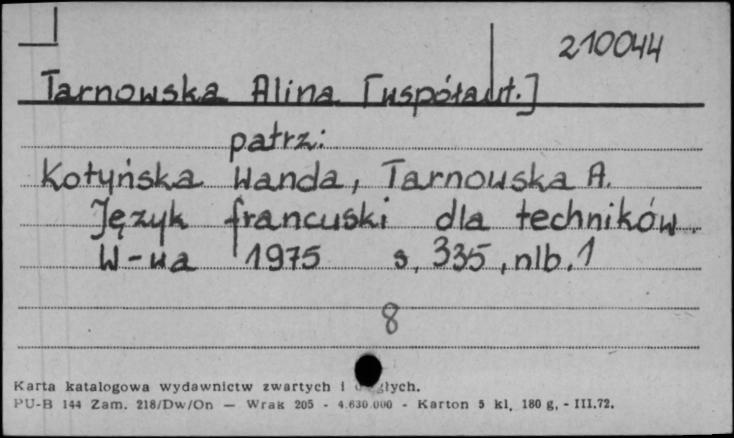 210044
Tarnowska Alina [współaut.]
patrz:
Kotyńska Wanda, Tarnowska A.
Język francuski dla techników.
W-wa 1975 s. 335, nlb. 1
8
Karta katalogowa wydawnictw zwartych i
PU-B 144 Zam. 218/Dw/On — Wrak 205 - 4.630.000 - Karton 5 kl, 180 g, - III.72.